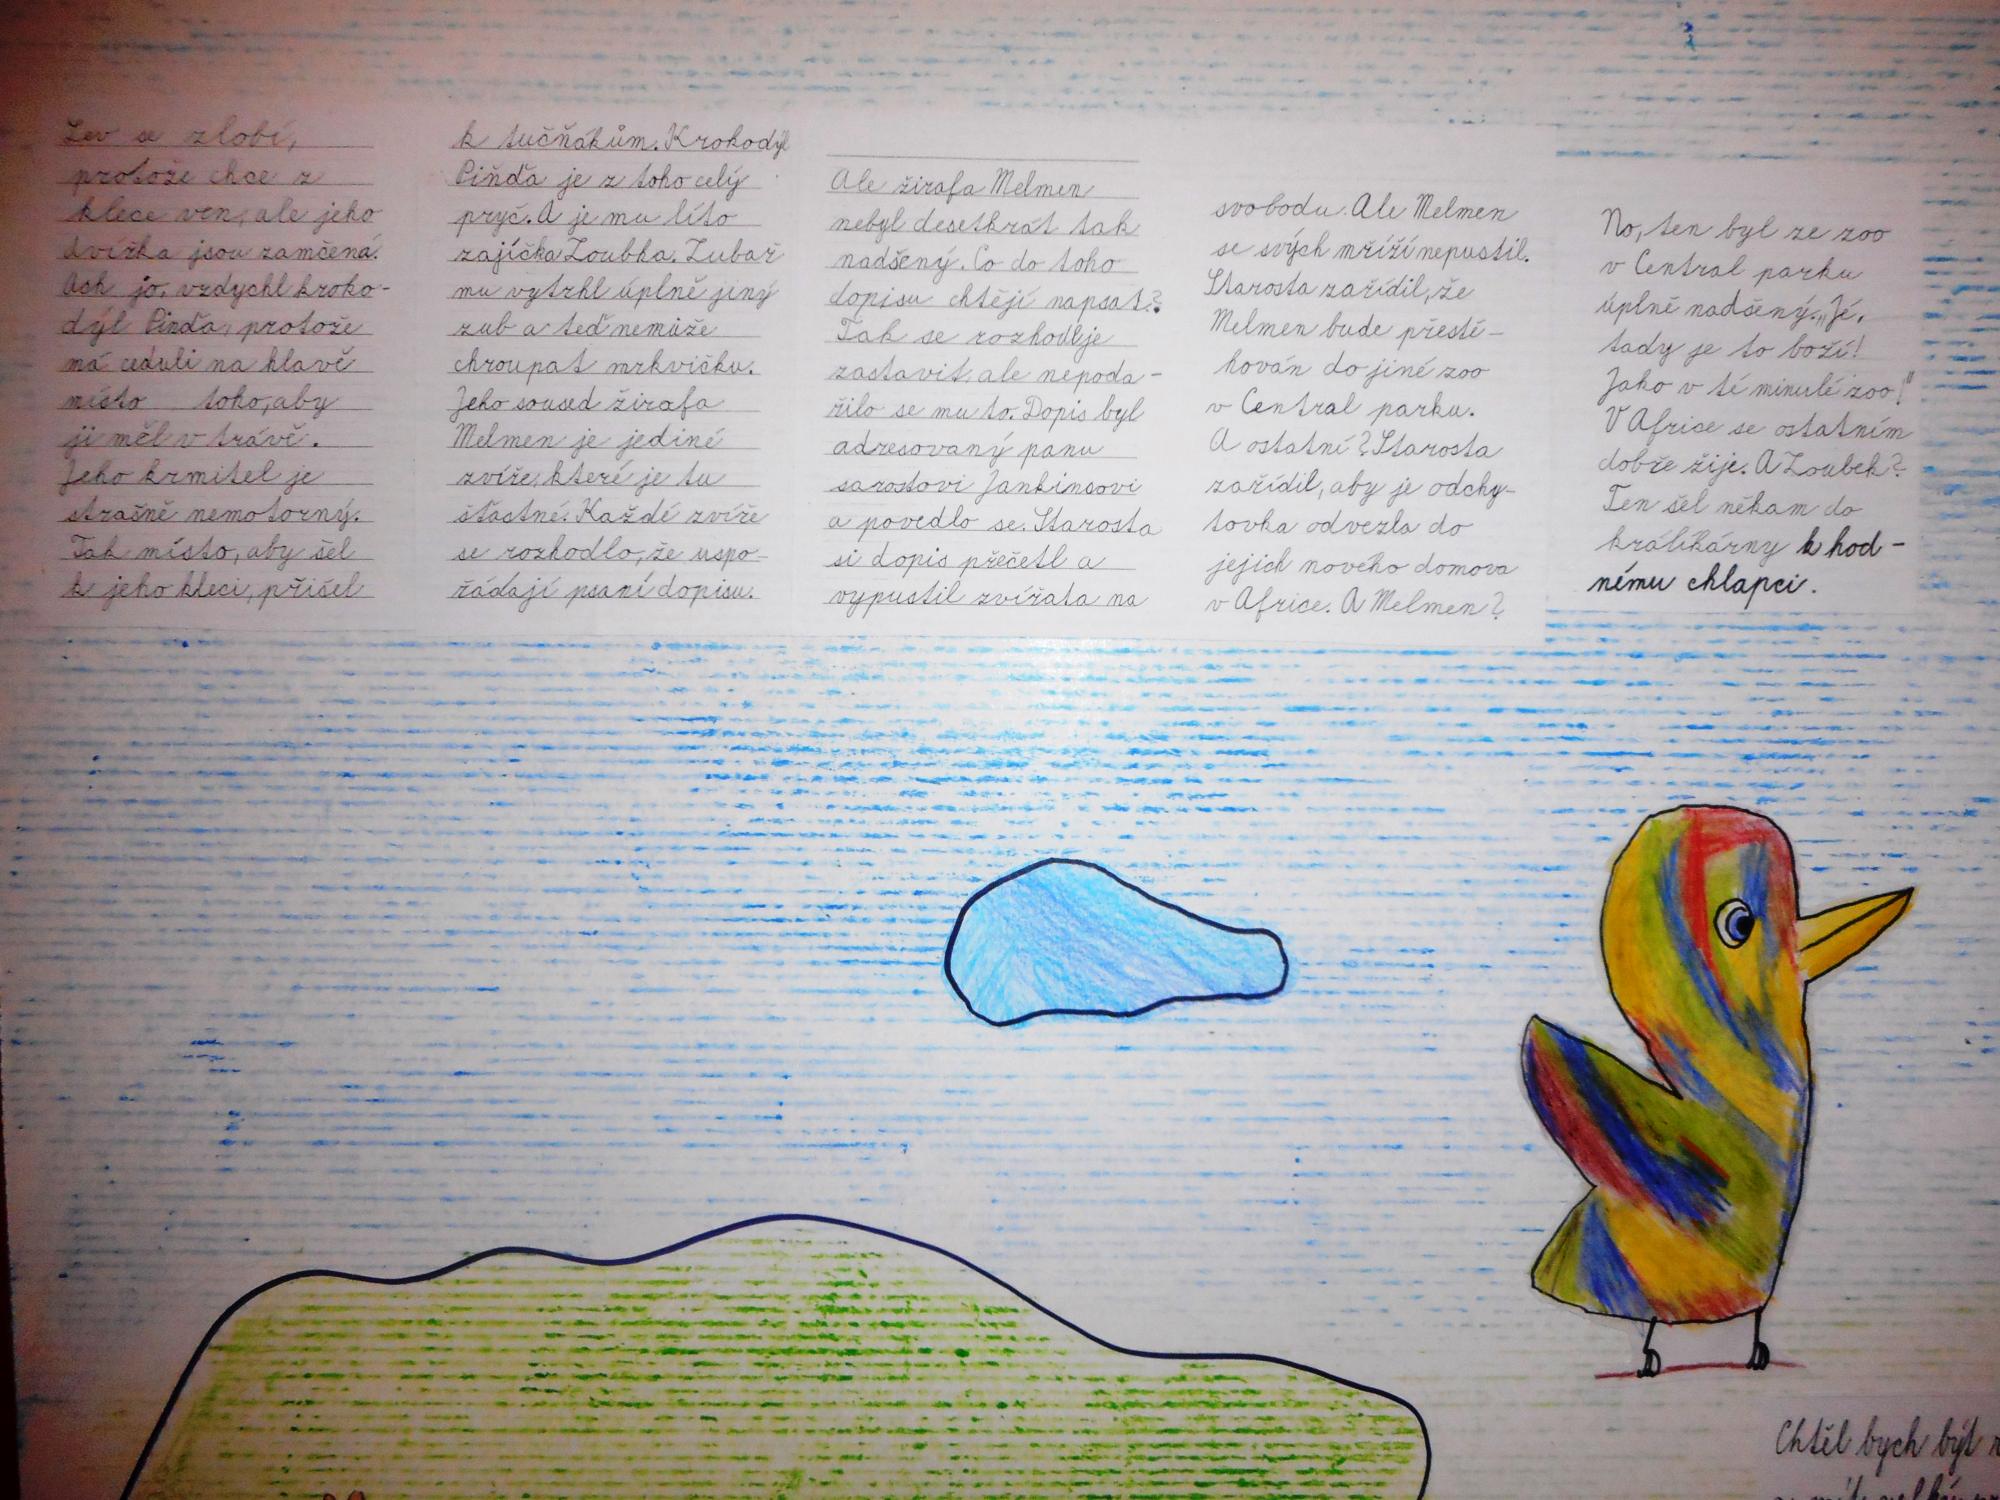 Lev se zlobí,
protože chce z
klece ven, ale jeho
dvířka jsou zamčená.
Ach jo, vzdychl kroko-
dýl Pinďa, protože
má ceduli na hlavě
místo toho, aby
ji měl v trávě.
Jeho krmitel je
strašně nemotorný.
Tak místo, aby šel
k jeho kleci, přišel
k tučňákům. Krokodýl
Piňďa je z toho celý
pryč. A je mu líto
zajíčka Zoubka. Zubař
mu vytrhl úplně jiný
zub a teď nemůže
chroupat mrkvičku.
Jeho soused žirafa
Melmen je jediné
zvíře, které je tu
šťastné. Každé zvíře
se rozhodlo, že uspo-
řádají psaní dopisu.
Ale žirafa Melmen
nebyl desetkrát tak
nadšený. Co do toho
dopisu chtějí napsat?
Tak se rozhodl je
zastavit, ale nepoda-
řilo se mu to. Dopis byl
adresovaný panu
sarostovi Jankinsovi
a povedlo se. Starosta
si dopis přečetl a
vypustil zvířata na
svobodu. Ale Melmen
se svých mříží nepustil.
Starosta zařídil, že
Melmen bude přestě-
hován do jiné zoo
v Central parku.
A ostatní? Starosta
zařídil, aby je odchy-
tovka odvezla do
jejich nového domova
v Africe. A Melmen?
No, ten byl ze zoo
v Central parku
úplně nadšený. „Jé,
tady je to boží!
Jako v té minulé zoo!"
V Africe se ostatním
dobře žije. A Zoubek?
Ten šel někam do
králikárny k hod-
nému chlapci.
Chtěl bych být